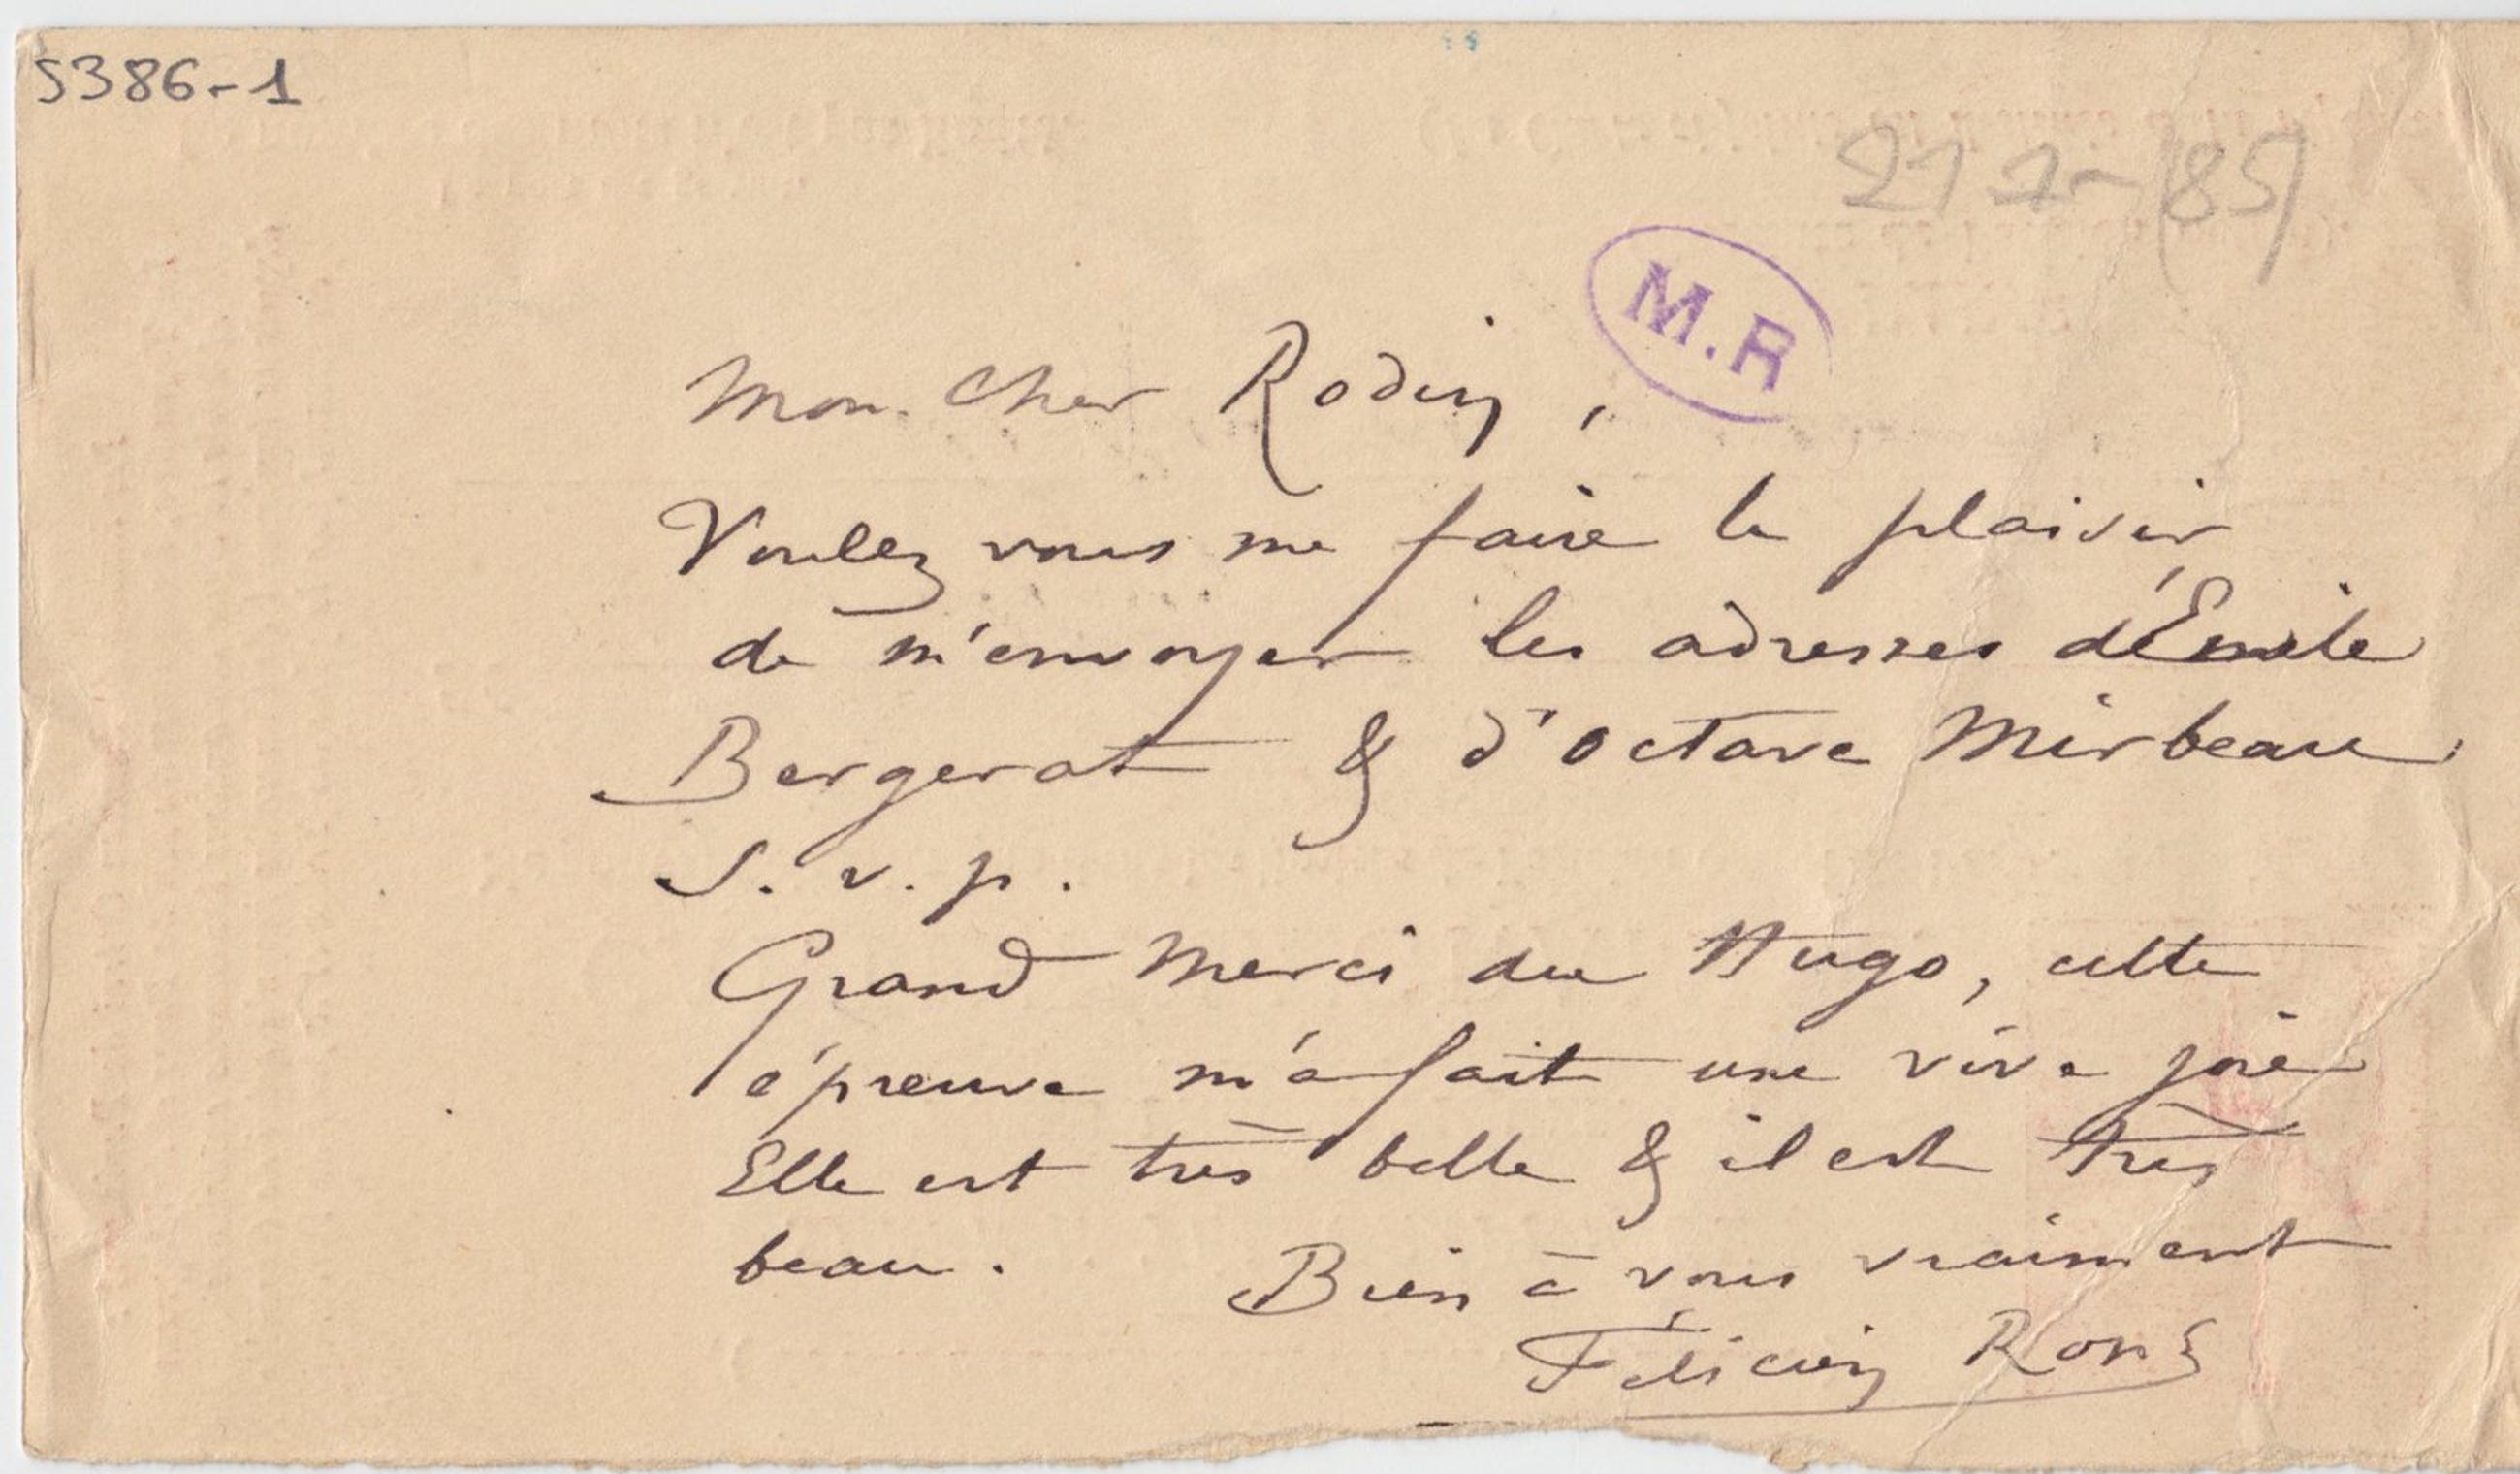 5386-1
21 7-(85)
M.R
Mon Cher Rodin,
Voulez vous me faire le plaisir
de m'envoyer les adresses d'Émile
Bergerat & d'Octave Mirbeau
S. v. p.
Grand Merci du Hugo, cette
épreuve m'a fait une vive joie
Elle est très belle & il est très
beau.
Bien à vous vraiment
Félicien Rops